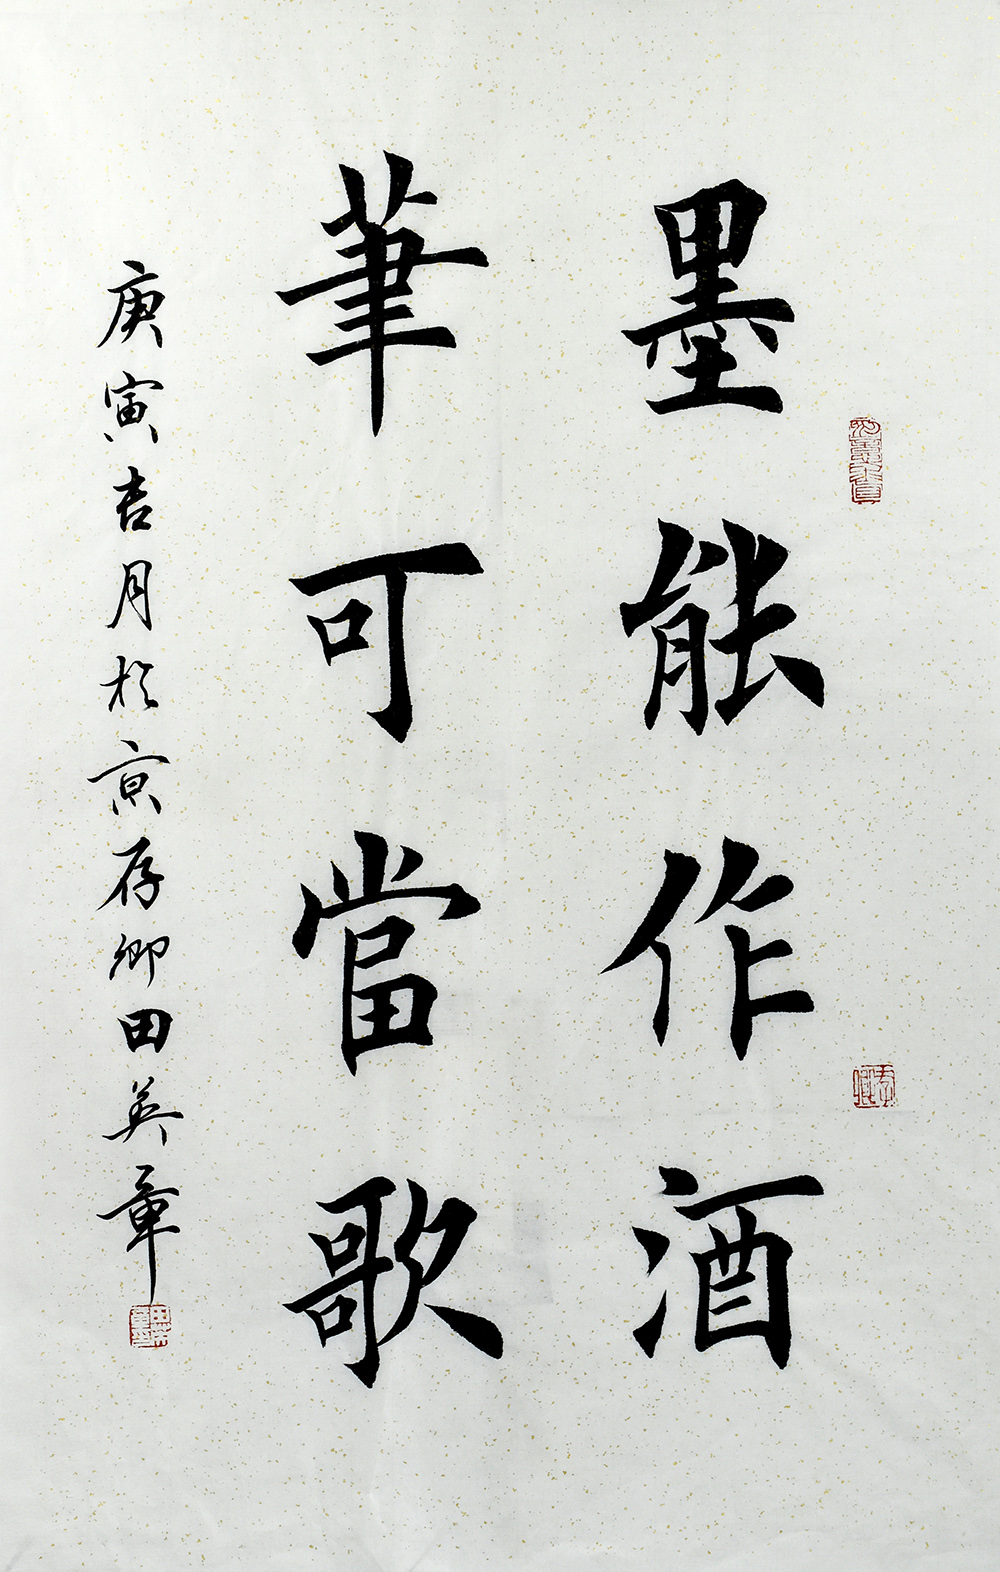 墨能作酒
筆可當歌
庚寅吉月於京存卿田英章